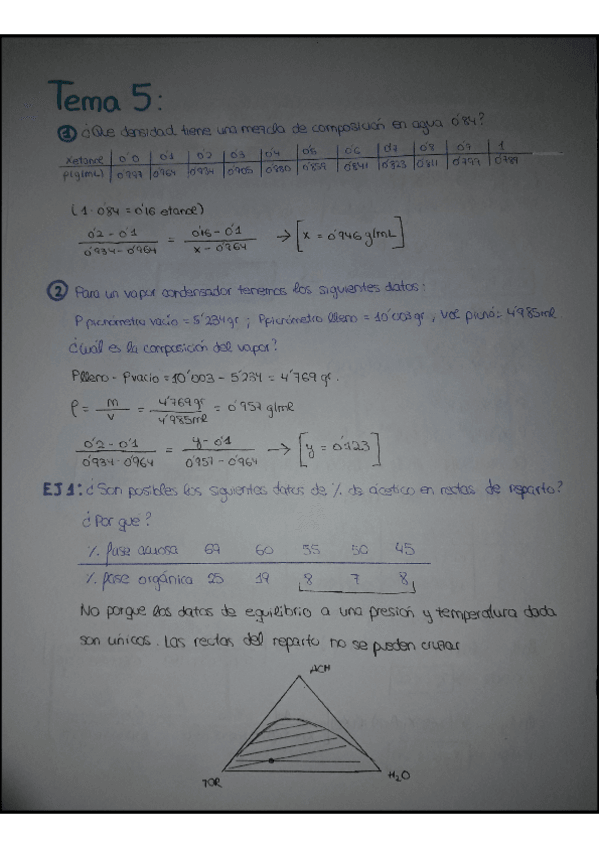 Tema 5:
1 ¿Que densidad tiene una mezcla de composición en agua 0'84?
Xetanol 0'0 0'1 0'2 0'3 0'4 0'5 0'6 0'7 0'8 0'9 1
ρ(g/mL) 0'997 0'964 0'934 0'841 0'823
(1-0'84 = 0'16 etanol)
0'2 - 0'1 / 0'934 - 0'964 = 0'16 - 0'1 / x - 0'964 → [x = 0'946 g/mL]
2 Para un vapor condensador tenemos los siguientes datos:
P picnómetro vacío = 5'234gr ; P picnómetro lleno = 10'003gr , Vol picnó: 4'985ml
¿Cuál es la composición del vapor?
Plleno - Pvacío = 10'003 - 5'234 = 4'769 gr.
ρ = m / v = 4'769gr / 4'985ml = 0'957 g/ml
0'2 - 0'1 / 0'934 - 0'964 = y - 0'1 / 0'957 - 0'964 → [y = 0'123]
EJ 1: ¿Son posibles los siguientes datos de % de acético en rectas de reparto?
¿Por que?
% fase acuosa 69 60 55 50 45
% fase orgánica 25 19 8 7 8
No porque los datos de equilibrio a una presión y temperatura dada
son unicos. Las rectas del reparto no se pueden cruzar
ACH
TOR H2O